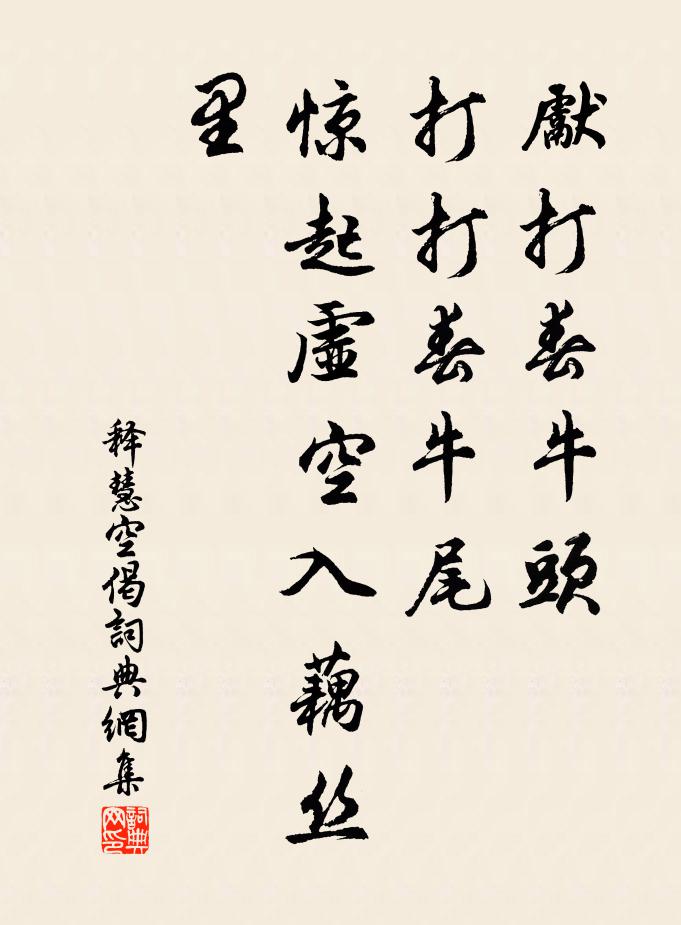 獻打春牛頭
打打春牛尾
惊起虚空入藕丝
里
释慧空偈詞典網集
詞典
网印